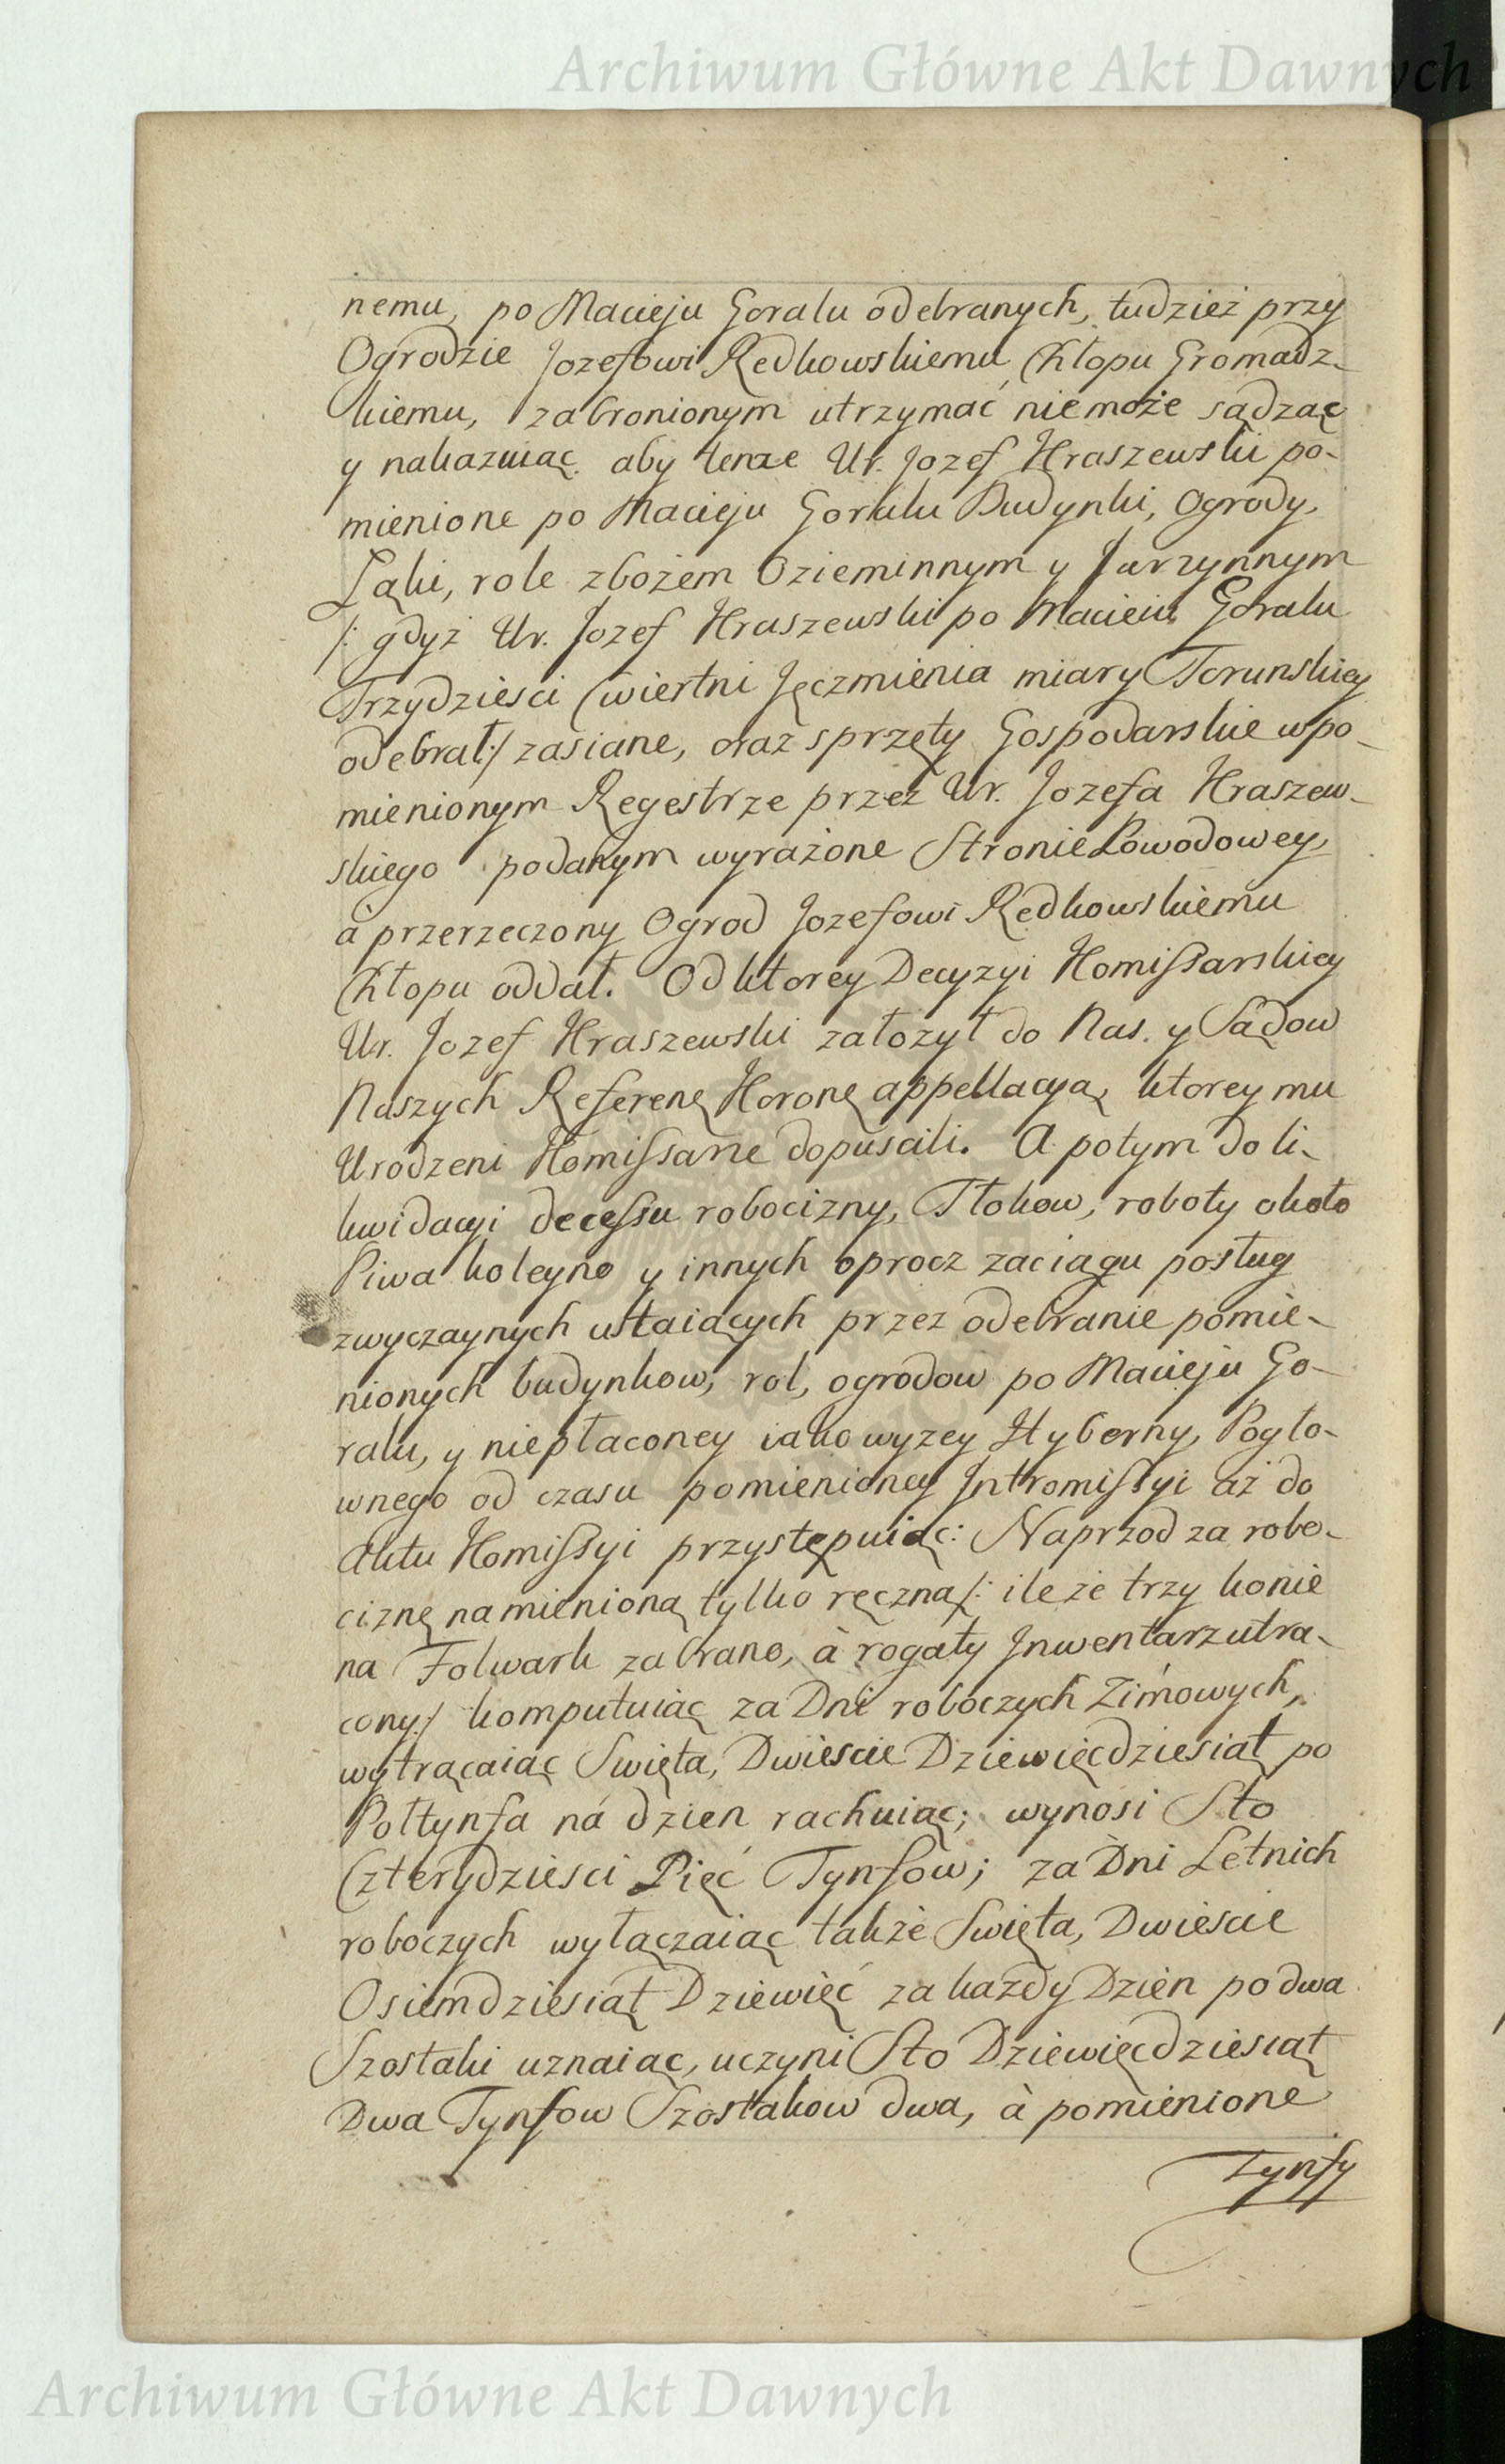 Archiwum Główne Akt Dawnych
nemu, po Macieju Goralu odebranych, tudzież przy
Ogrodzie Jozefowi Redkowskiemu Chłopu Gromadz-
kiemu, zabronionym utrzymać niemoże sądząc
y nakazuiąc. aby tenze Ur. Jozef Kraszewski po-
mienione po Macieju Goralu Budynki, Ogrody,
Łąki, role zbożem Ozieminnym y Jarzynnym
/: gdyż Ur. Jozef Kraszewski po Macieiu Goralu
Trzydziesci Cwiertni Jęczmienia miary Torunskiey
odebrał:/ zasiane, oraz sprzęty Gospodarskie w po-
mienionym Regestrze przez Ur. Jozefa Kraszew-
skiego podanym wyrażone Stronie Powodowey,
à przerzeczony Ogrod Jozefowi Redkowskiemu
Chłopu oddał. Od ktorey Decyzyi Komissarskiey
Ur. Jozef Kraszewski założył do Nas. y Sądow
Naszych Referenę Koronę appellacyą, ktorey mu
Urodzeni Komissarze dopuscili. A potym do li-
kwidacyi decessu robocizny, Tłokow, roboty około
Piwa koleyno y innych oprocz zaciągu posług
zwyczaynych ustaiących przez odebranie pomie-
nionych budynkow, rol, ogrodow po Macieju Go-
ralu, y niepłaconey iako wyzey Hyberny, Pogło-
wnego od czasu pomienioney Intromissyi aż do
Aktu Komissyi przystępuiąc: Naprzod za robo-
ciznę namienioną tylko ręczną /: ile że trzy konie
na Folwark zabrano, à rogaty Inwentarz utra-
cony:/ komputuiąc za Dni roboczych Zimowych,
wytrącaiąc Swięta, Dwiescie Dziewięcdziesiąt po
Połtynfa ná dzien rachuiąc; wynosi Sto
Czterydziesci Pięć Tynfow; za Dni Letnich
roboczych wyłączaiąc także Swięta, Dwiescie
Osiemdziesiąt Dziewięć za każdy Dzien po dwa
Szostaki uznaiąc, uczyni Sto Dziewięcdziesiąt
Dwa Tynfow Szostakow dwa, à pomienione
Tynfy
Archiwum Główne Akt Dawnych